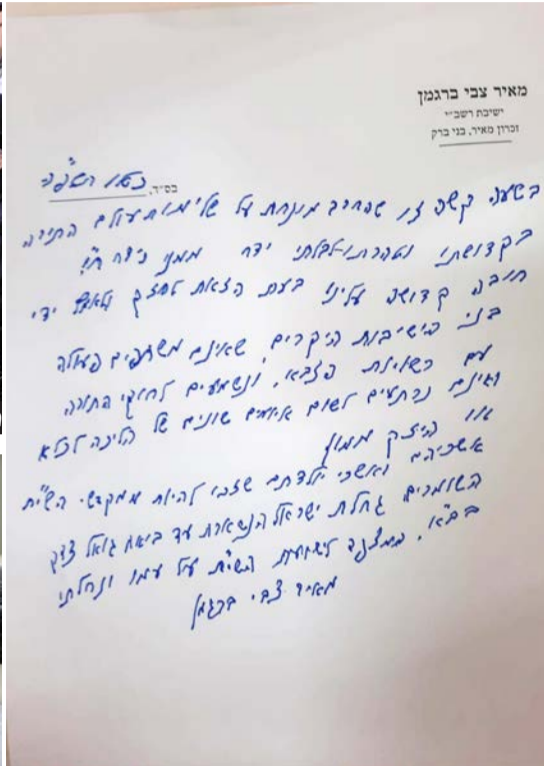 מאיר צבי ברגמן
ישיבת רשב"י
זכרון מאיר, בני ברק
בס"ד,
בשעה קשה זו שהחרב מונחת על של עולם התורה
בקדושתו וטהרתו לבלתי ידח ממנו נידח ח"ו
חובה קדושה עלינו בעת הזאת לחזק ולאמץ ידי
בני הישיבות היקרים שאינם משתפים פעולה
עם רשויות הצבא, ונשמעים לחוקי התורה
ואינם נרתעים לשום איומים שונים של הליכה לכלא
או היזק ממון
אשריהם ואשרי יולדתם שזכו להיות ממקדשי הש"ת
השומרים גחלת ישראל הנשארת עד ביאת גואל צדק
בב"א. המצפה לישועת הש"ת על עמו ונחלתו
מאיר צבי ברגמן